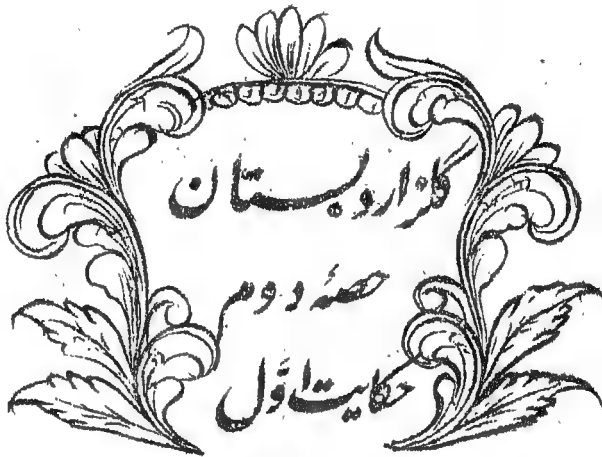 گلزار دبستان
حصهٔ دوم
حکایت اوّل